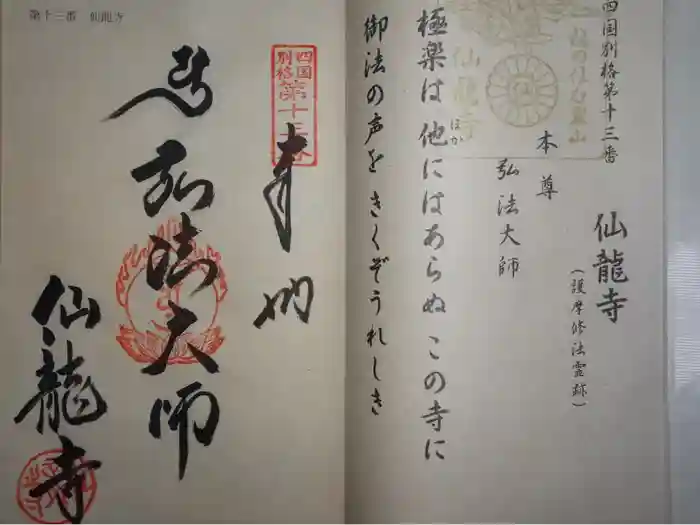 四国別格第十三番
仙龍寺
(護摩修法霊跡)
本尊
弘法大師
仙龍寺
ほか
極楽は 他にはあらぬ この寺に
御法の声を きくぞうれしき
四国
別格
第十三番
奉納
弘法大師
仙龍寺
第十三番 仙龍寺